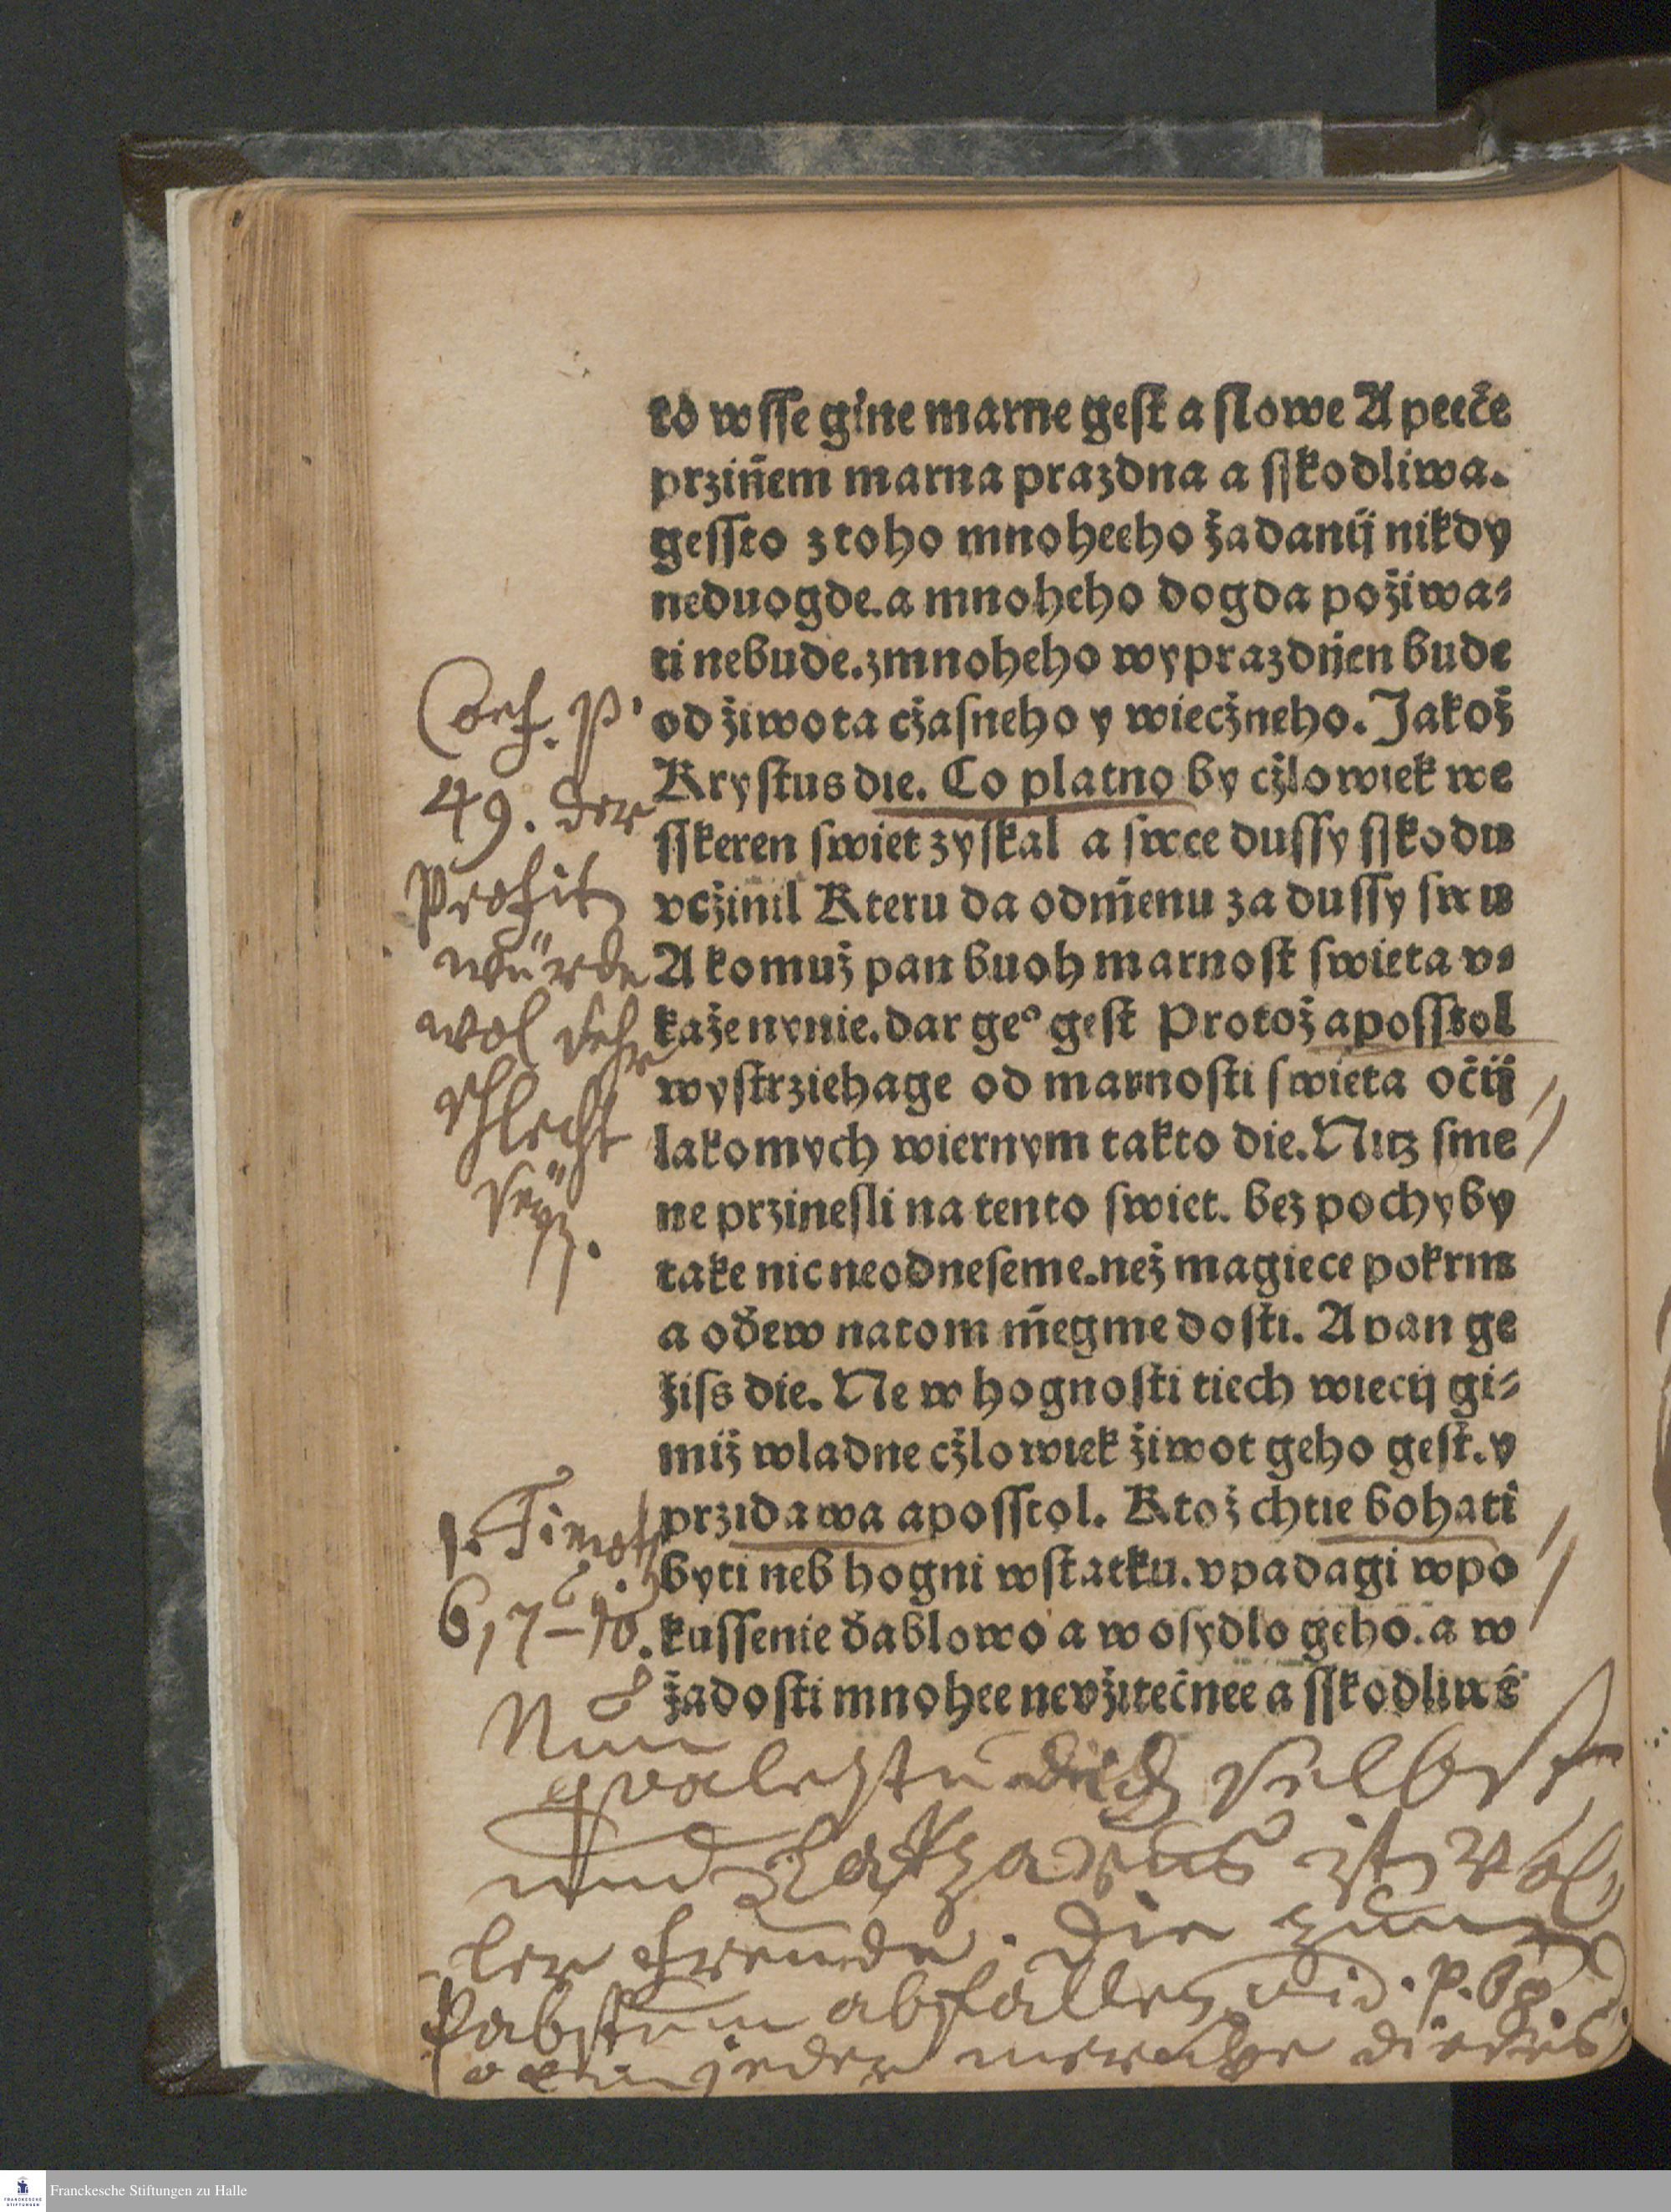 to wsse gine marne gest a slowe A peeče
przin̄em marna prazdna a sskodliwa.
gessto z toho mnoheeho žadanij nikdy
neduogde. a mnoheho dogda poživwa⸗
ti nebude. z mnoheho wyprazdn̄en bude
od života cžasneho y wiecžneho. Jakož
Krystus die. Co platno by cžlowiek we
sskeren swiet zyskal a swce dussy sskodu
vcžinil Kteru da odm̄enu za dussy swu
A komuž pan buoh marnost swieta v⸗
kaže nynie. dar geº gest Protož aposstol
wystrziehage od marnosti swieta očij
lakomych wiernym takto die. Nitz sme
ne przinesli na tento swiet. bez pochyby
take nic neodneseme. než magiece pokrm
a oděw na tom m̄egme dosti. A pan ge
žiss die. Ne w hognosti tiech wiecij gi⸗
miž wladne cžlowiek život geho gest. y
przidawa aposstol. Ktož chtie bohati
byti neb hogni w statku. vpadagi w po
kussenie ďablowo a w osydlo geho. a w
žadosti mnohee nevžitečnee a sskodliwé
49. der
Profit
würde
wol sehr
schlecht
seyn.
1. Timoth.
6, 7-10.
Nun
qvalestu dich selbst
und Lazarus ist vol⸗
ler freude. Die zum
Pabstum abfallen vid. p.
jeder mercke dieses
Franckesche Stiftungen zu Halle